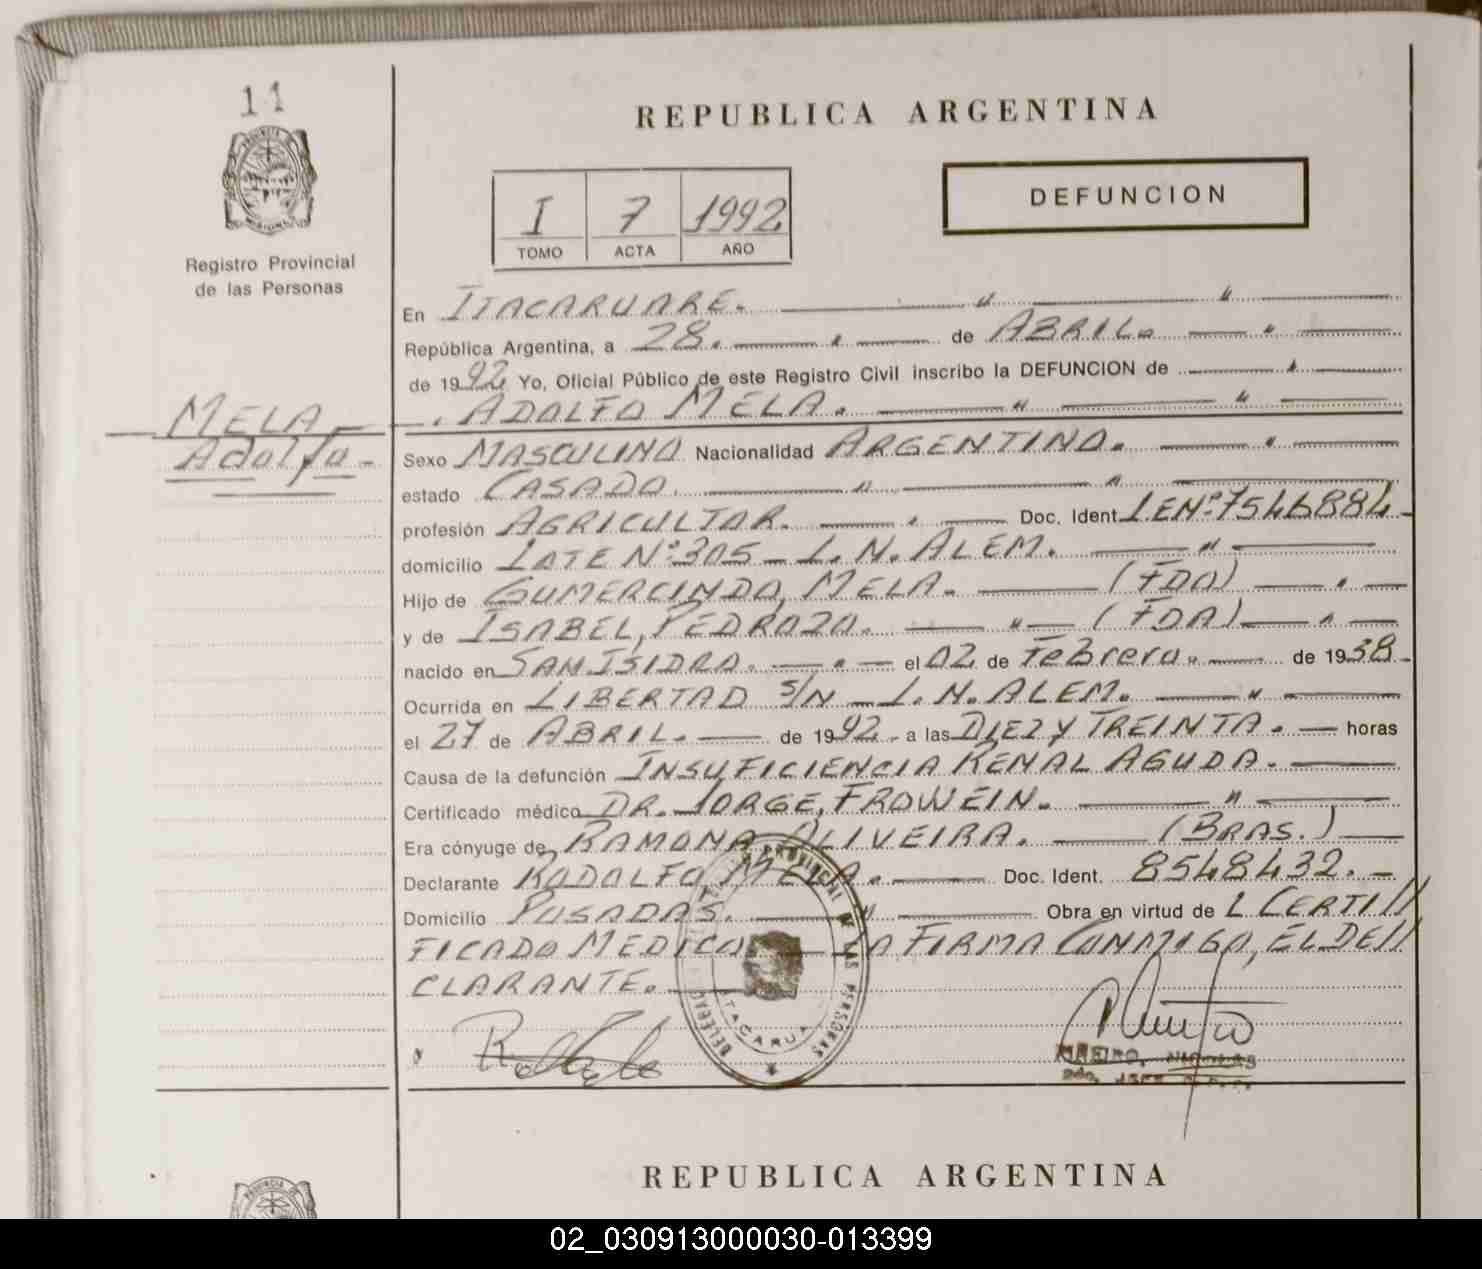 11
REPUBLICA ARGENTINA
DEFUNCION
I 7 1992
TOMO ACTA AÑO
Registro Provincial
de las Personas
En ITACARUARE.
República Argentina, a 28. de ABRIL.
de 1992 Yo, Oficial Público de este Registro Civil inscribo la DEFUNCION de
ADOLFO MELA.
MELA
Adolfo-
Sexo MASCULINO Nacionalidad ARGENTINO.
estado CASADO.
profesión AGRICULTOR. Doc. Ident. LEN°:7546884-
domicilio LOTE N°:305- L.N. ALEM.
Hijo de GUMERCINDO, MELA. (FDO)
y de ISABEL, PEDROZO. (FDA)
nacido en SAN ISIDRO. el 02 de Febrero. de 1938-
Ocurrida en LIBERTAD S/N - L.N. ALEM.
el 27 de ABRIL. de 1992.- a las DIEZ Y TREINTA. horas
Causa de la defunción INSUFICIENCIA RENAL AGUDA.
Certificado médico DR. JORGE, FROWEIN.
Era cónyuge de RAMONA OLIVEIRA. (BRAS.)
Declarante RODOLFO MELA. Doc. Ident. 8548432.-
Domicilio POSADAS. Obra en virtud de L CERTI//
FICADO MEDICO FIRMA CONMIGO, EL DE//
CLARANTE.
PROVINCIAL DE LAS PERSONAS
ITACARUA
2do. JEFE
REPUBLICA ARGENTINA
02_030913000030-013399